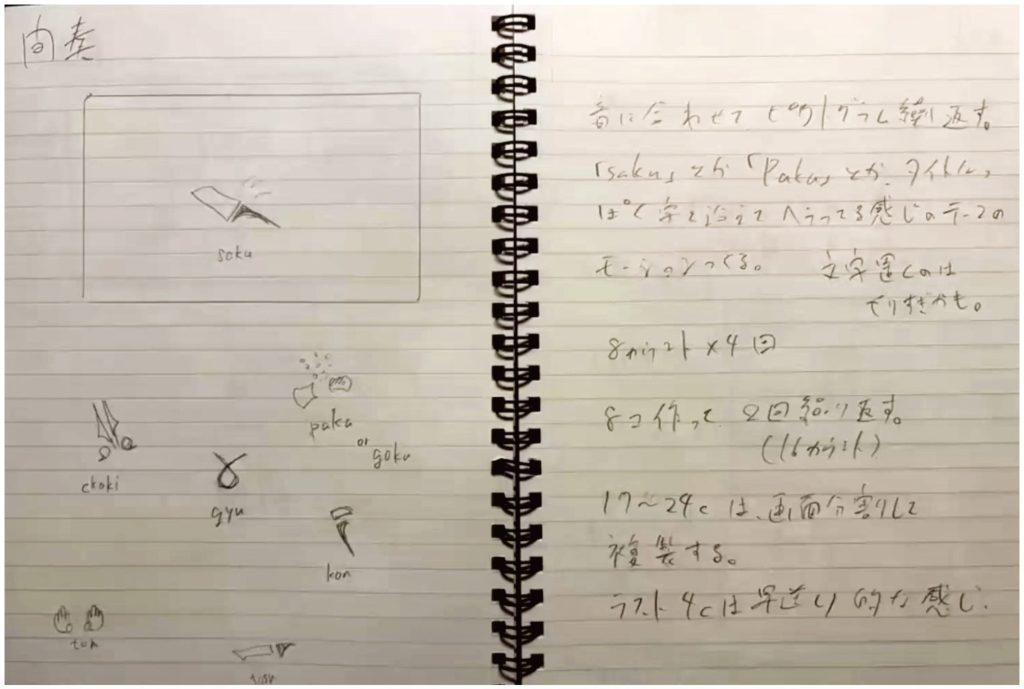 間奏
saku
paka
or
goku
choki
gyu
kon
ton
音に合わせてピクトグラム繰り返す。
「saku」とか「Paku」とか、タイトル
っぽく字を沿えてへらってる感じのテープの
モーションつくる。 文字置くのは
やりすぎかも。
8カウント×4回
8コ作って 2回繰り返す。
(16カウント)
17〜24cは、画面分割して
複製する。
ラスト4cは早送り的な感じ.